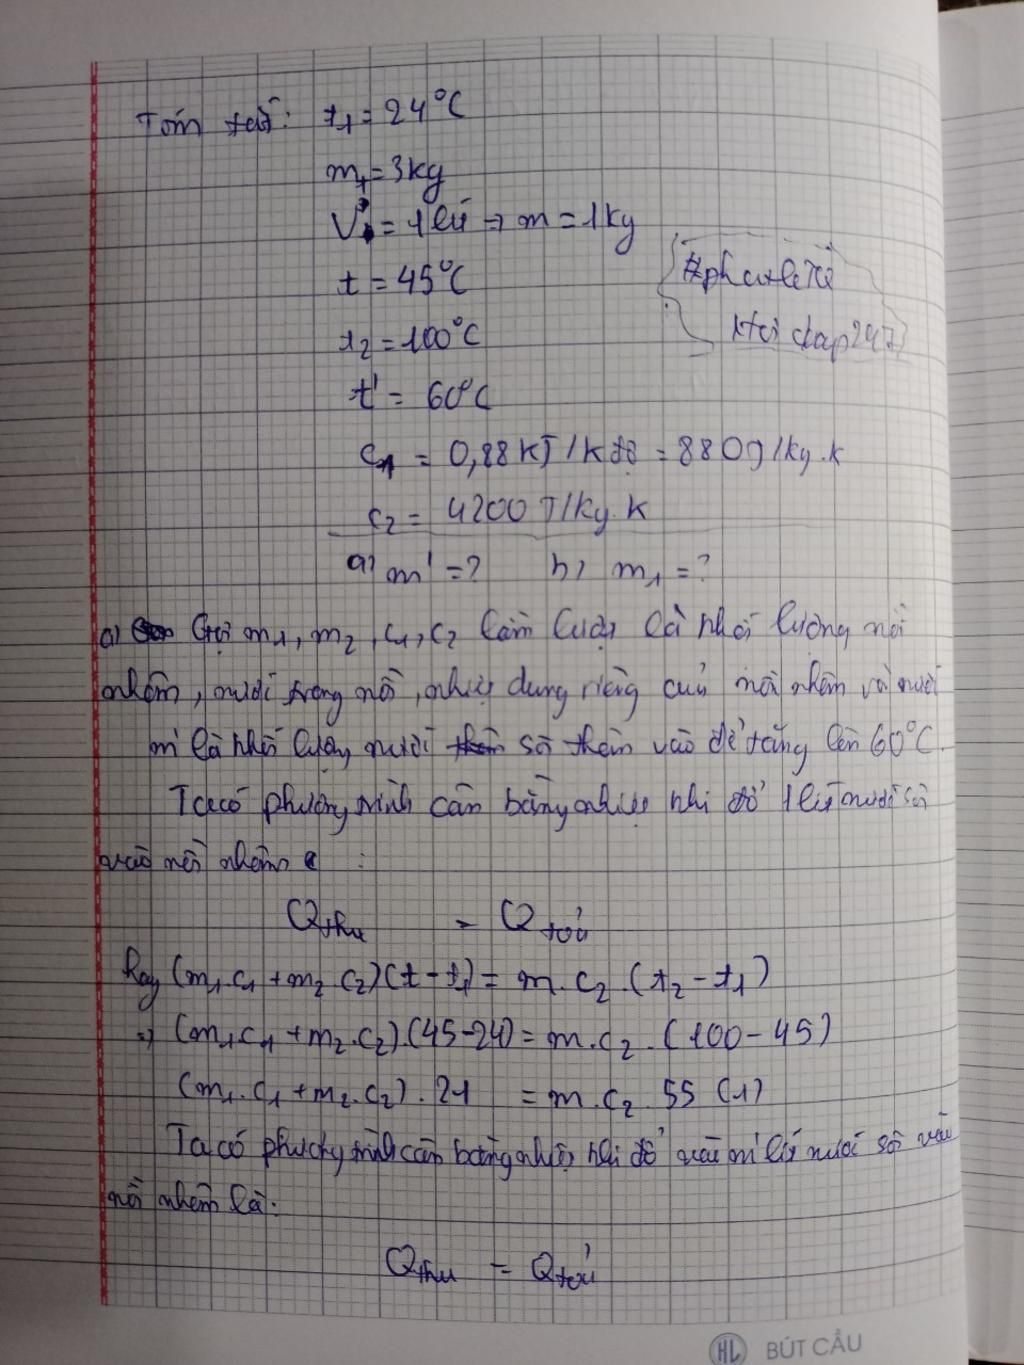 Tóm tắt: t₁ = 24°C
m₁ = 3kg
V = 1 lít → m = 1kg
t = 45°C
#phuxle
Hoidap247
t₂ = 100°C
t' = 60°C
c₁ = 0,88 KJ/kđộ = 880J/kg.k
c₂ = 4200 J/kg.k
a) m' = ? b) m₁ = ?
a) Gọi m₁, m₂, c₁, c₂ lần lượt là khối lượng nồi
nhôm, nước trong nồi, nhiệt dung riêng của nồi nhôm và nước
m' là khối lượng nước sôi thêm vào để tăng lên 60°C.
Ta có phương trình cân bằng nhiệt khi đổ 1 lít nước sôi
vào nồi nhôm :
Qthu = Qtoả
Hay (m₁.c₁ + m₂.c₂)(t - t₁) = m.c₂.(t₂ - t₁)
⇒ (m₁.c₁ + m₂.c₂).(45-24) = m.c₂.(100-45)
(m₁.c₁ + m₂.c₂).21 = m.c₂.55 (1)
Ta có phương trình cân bằng nhiệt khi đổ vào m' lít nước sôi vào
nồi nhôm là:
Qthu = Qtoả
HL BÚT CẦU